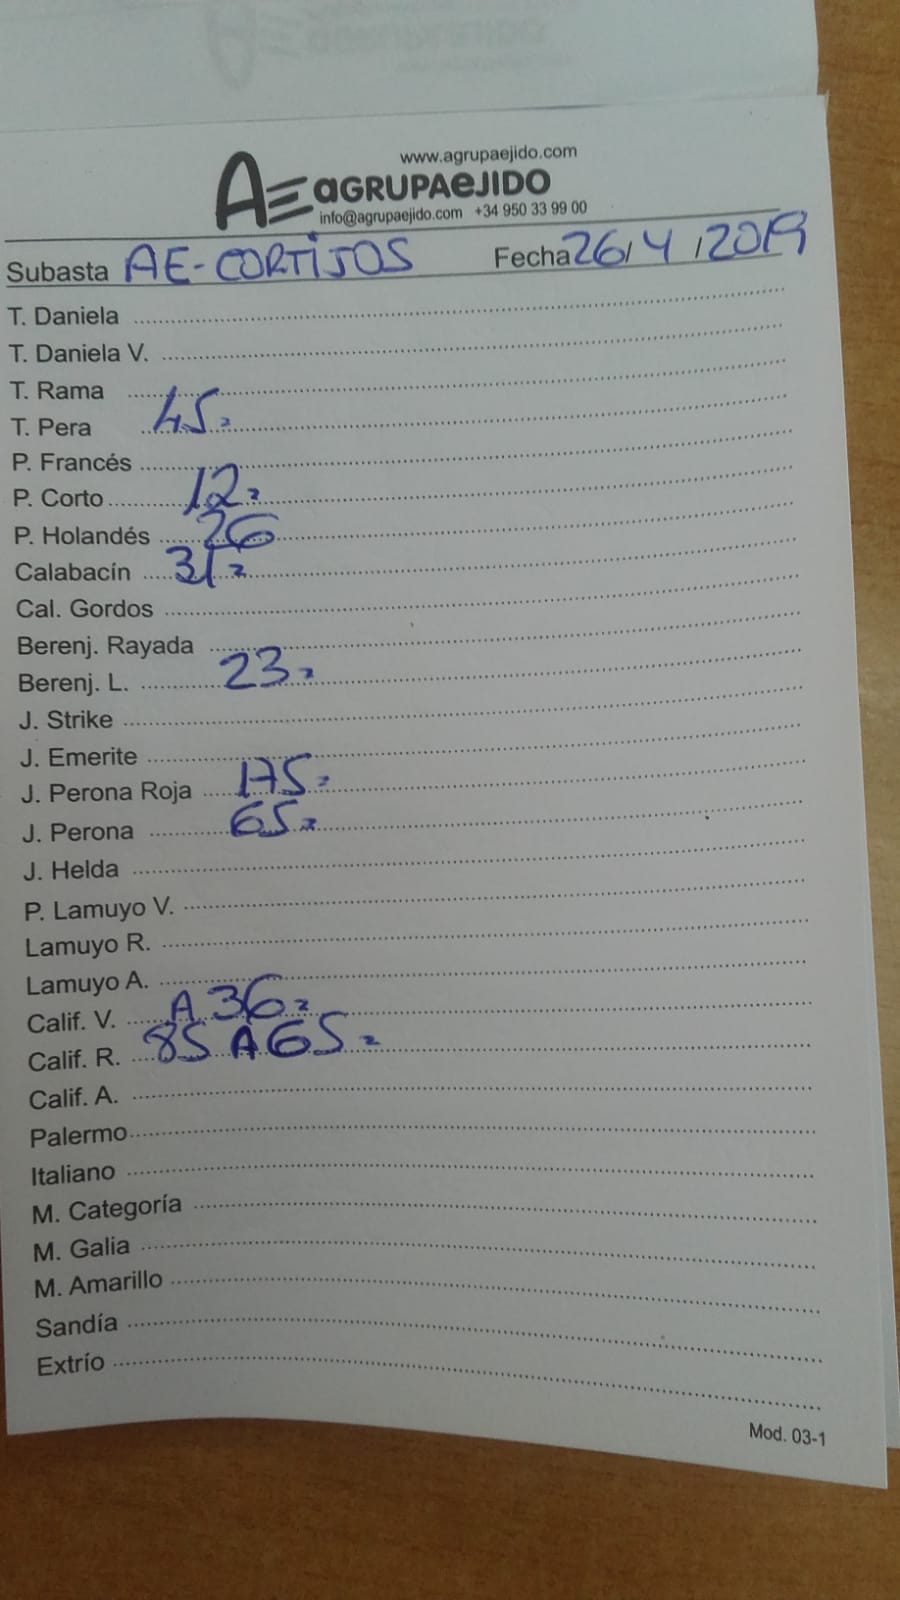 www.agrupaejido.com
AE AGRUPAEJIDO
info@agrupaejido.com +34 950 33 99 00
Subasta AE-CORTIJOS Fecha 26/4/2019
T. Daniela
T. Daniela V.
T. Rama
T. Pera 45=
P. Francés
P. Corto 12=
P. Holandés 26
Calabacín 31=
Cal. Gordos
Berenj. Rayada
Berenj. L. 23=
J. Strike
J. Emerite
J. Perona Roja 175=
J. Perona 65=
J. Helda
P. Lamuyo V.
Lamuyo R.
Lamuyo A.
Calif. V. A 36=
Calif. R. 85 A 65=
Calif. A.
Palermo
Italiano
M. Categoría
M. Galia
M. Amarillo
Sandía
Extrío
Mod. 03-1